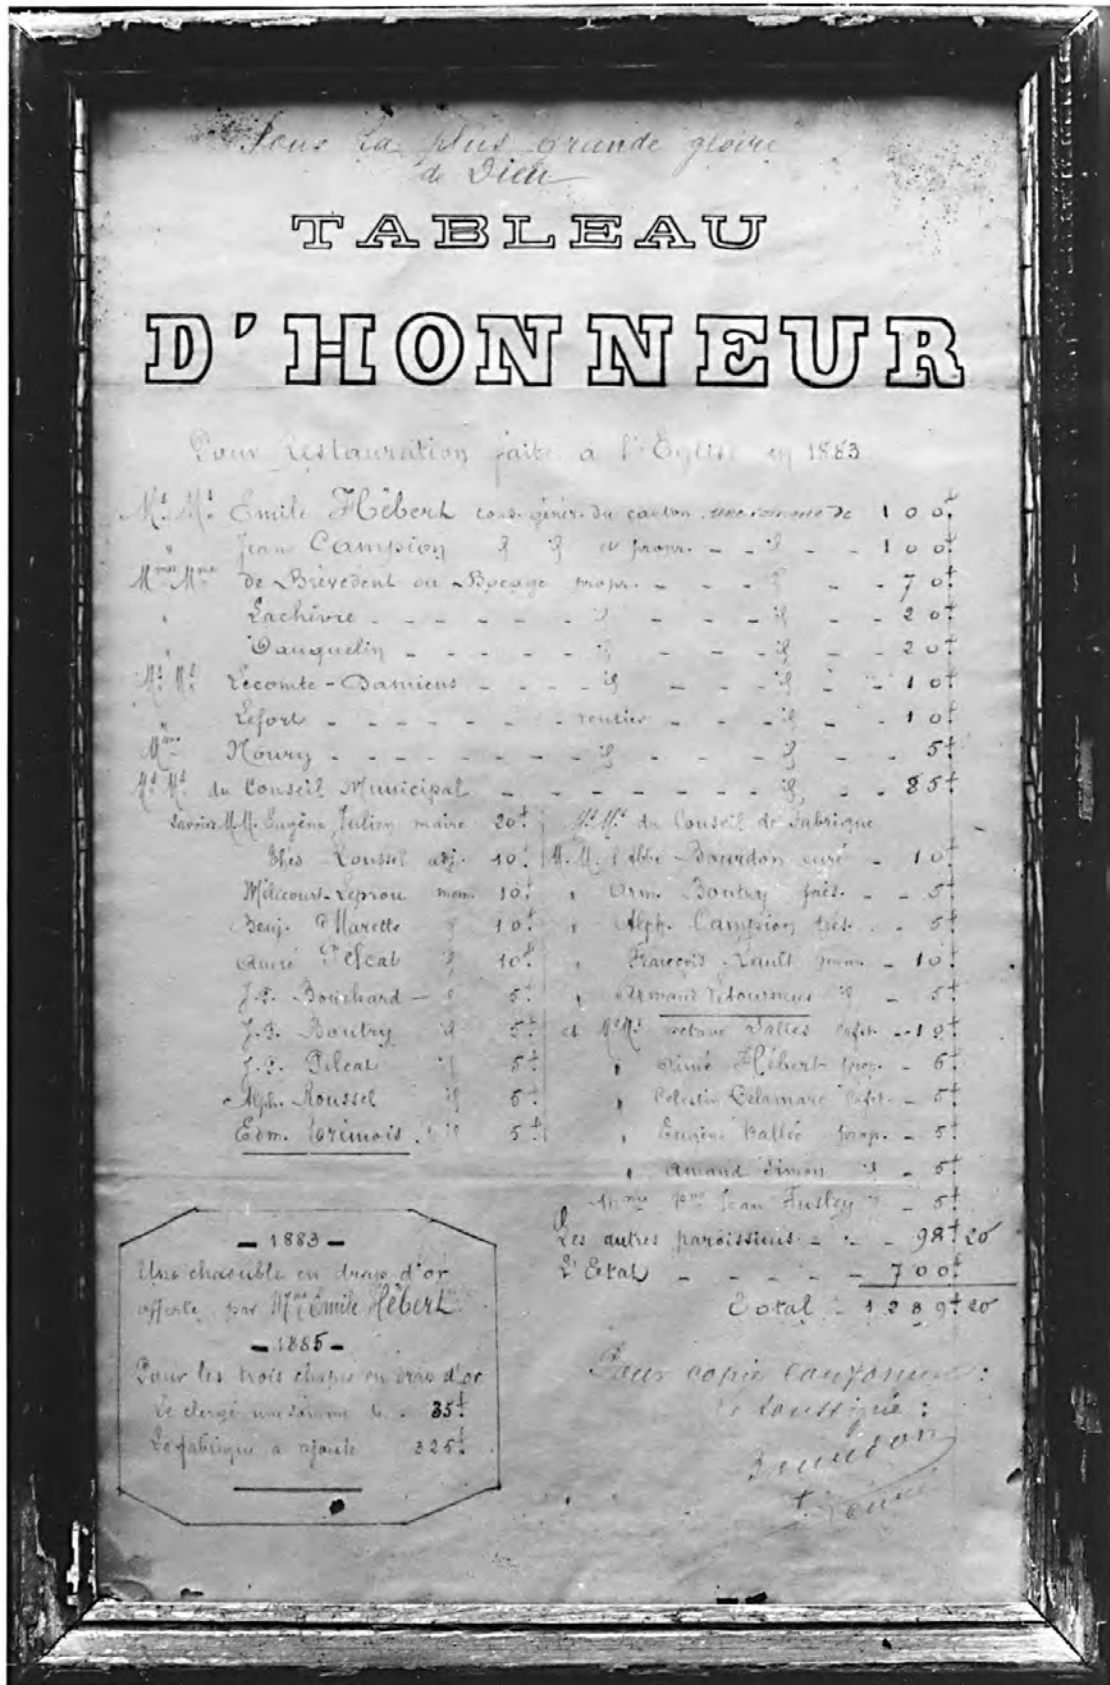 Pour la plus grande gloire
de Dieu
TABLEAU
D'HONNEUR
Pour Restauration faite à l'Eglise en 1883
Mrs Mrs Emile Hébert cons. génér. du canton une somme de 100f
" Jean Campion id id et propr. - - id - - 100f
Mmes Mmes de Brèvedent du Bocage propr. - - - id - - 70f
" Lachèvre - - - - - - id - - - id - - 20f
" Vauquelin - - - - - id - - - id - - 20f
Mrs Mrs Lecomte-Damiens - - - - id - - - id - - 10f
" Lefort - - - - - - rentier - - - id - - 10f
Mme Noury - - - - - - - id - - - id - - 5f
Mrs Mrs du Conseil Municipal - - - - - - - id - - 85f
savoir M.M. Eugène Julien maire 20f
Thés Roussel adj. 10f
Mélicourt-Leprou mem. 10f
Benj. Marette id 10f
Pelcat id 10f
J.P. Bouchard - id 5f
J.B. Boutry id 5f
J.P. Pelcat id 5f
Alph. Roussel id 5f
Edm. id 5f
Mrs Mrs du Conseil de Fabrique
M.M. l'Abbé Bourdon curé - 10f
" Arm. Boutry prés. - - 5f
" Alph. Campion trés. - - 5f
" François Lault mem. - 10f
" Armand Letourneur id - 5f
et Mrs Mrs Octave Vallée - - 12f
" Aimé Hébert prop. - 6f
" Célestin Delamare - 5f
" Eugène Vallée prop. - 5f
" Amand Simon id - 5f
Jean - 5f
Les autres paroissiens - - - 98f20
L'Etat - - - - - 700f
Total - 1289f20
- 1883 -
Une chasuble en drap d'or
offerte par Mme Emile Hébert
- 1885 -
Pour les trois chapes en drap d'or
Le clergé une somme de - 35f
La fabrique a ajouté 325f
Pour copie conforme :
le soussigné :
Bourdon